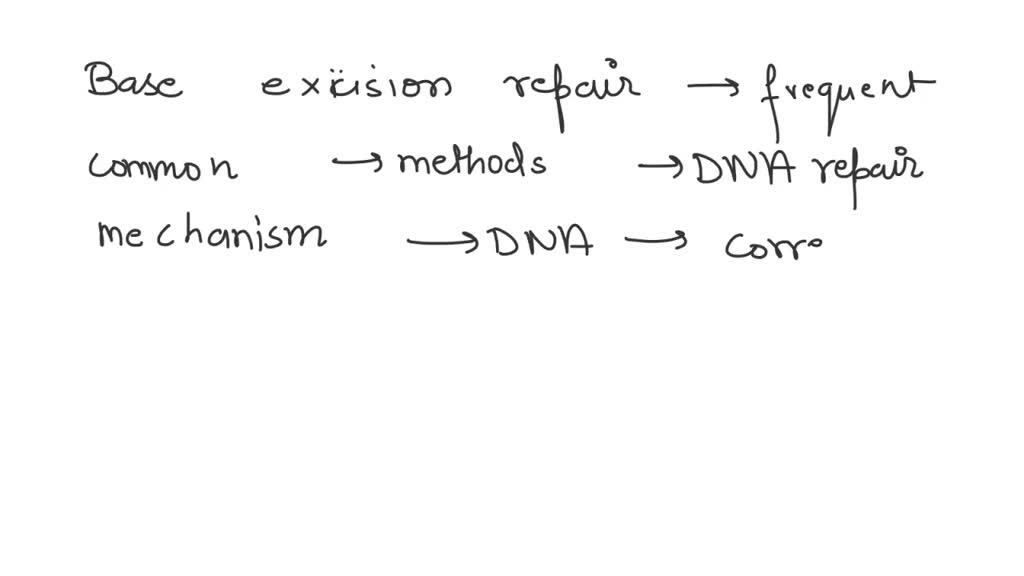 Base excision repair → frequent
common → methods → DNA repair
mechanism → DNA → corr